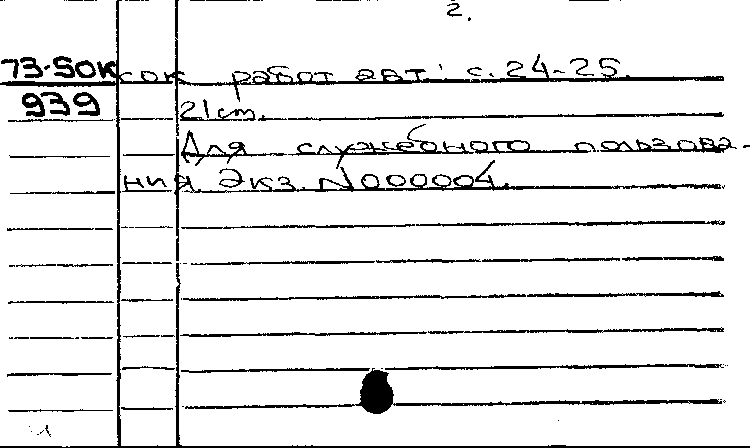 2.
73-50к сок работ авт: с. 24-25.
939 21 cm.
Для служебного пользова-
ния. Экз. N000004.